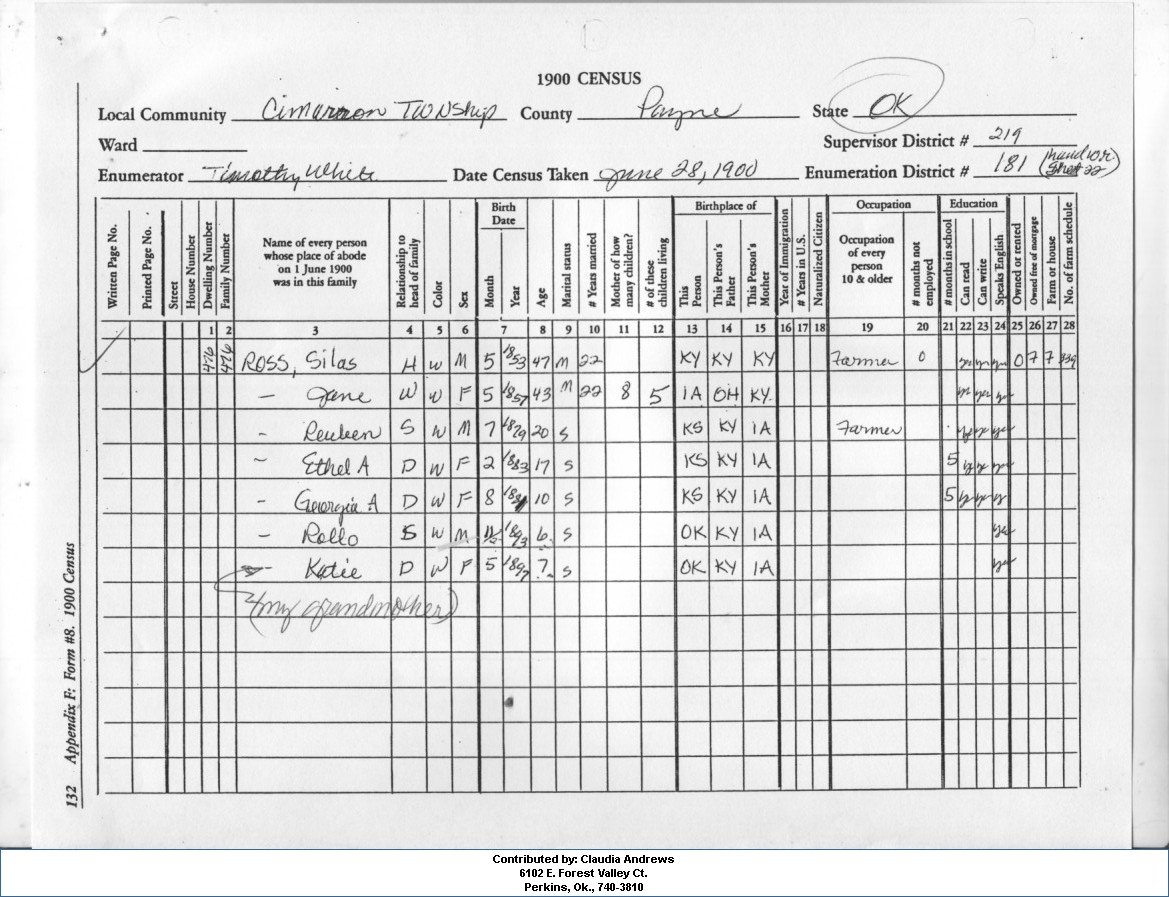 1900 CENSUS
Local Community Cimarron TWNship County Payne State OK
Ward Supervisor District # 219
Enumerator Timothy White Date Census Taken June 28, 1900 Enumeration District # 181 (handwr. Sheet 22)
Birth Date Birthplace of Occupation Education
Written Page No. Printed Page No. Street House Number Dwelling Number Family Number Name of every person whose place of abode on 1 June 1900 was in this family Relationship to head of family Color Sex Month Year Age Marital status # Years married Mother of how many children? # of these children living This Person This Person's Father This Person's Mother Year of Immigration # Years in U.S. Naturalized Citizen Occupation of every person 10 & older # months not employed # months in school Can read Can write Speaks English Owned or rented Owned free of mortgage Farm or house No. of farm schedule
1 2 3 4 5 6 7 8 9 10 11 12 13 14 15 16 17 18 19 20 21 22 23 24 25 26 27 28
476 476 ROSS, Silas H W M 5 1853 47 M 22 KY KY KY Farmer 0 yes yes yes O 7 7 339
– Jane W W F 5 1857 43 M 22 8 5 IA OH KY yes yes yes
– Reuben S W M 7 1879 20 S KS KY IA Farmer yes yes yes
– Ethel A D W F 2 1883 17 S KS KY IA 5 yes yes yes
– Georgia A D W F 8 10 S KS KY IA 5 yes yes yes
– Rollo S W M 1893 6 S OK KY IA yes
– Katie D W F 5 1897 ? S OK KY IA yes
(my grandmother)
132 Appendix F: Form #8. 1900 Census
Contributed by: Claudia Andrews
6102 E. Forest Valley Ct.
Perkins, Ok., 740-3810